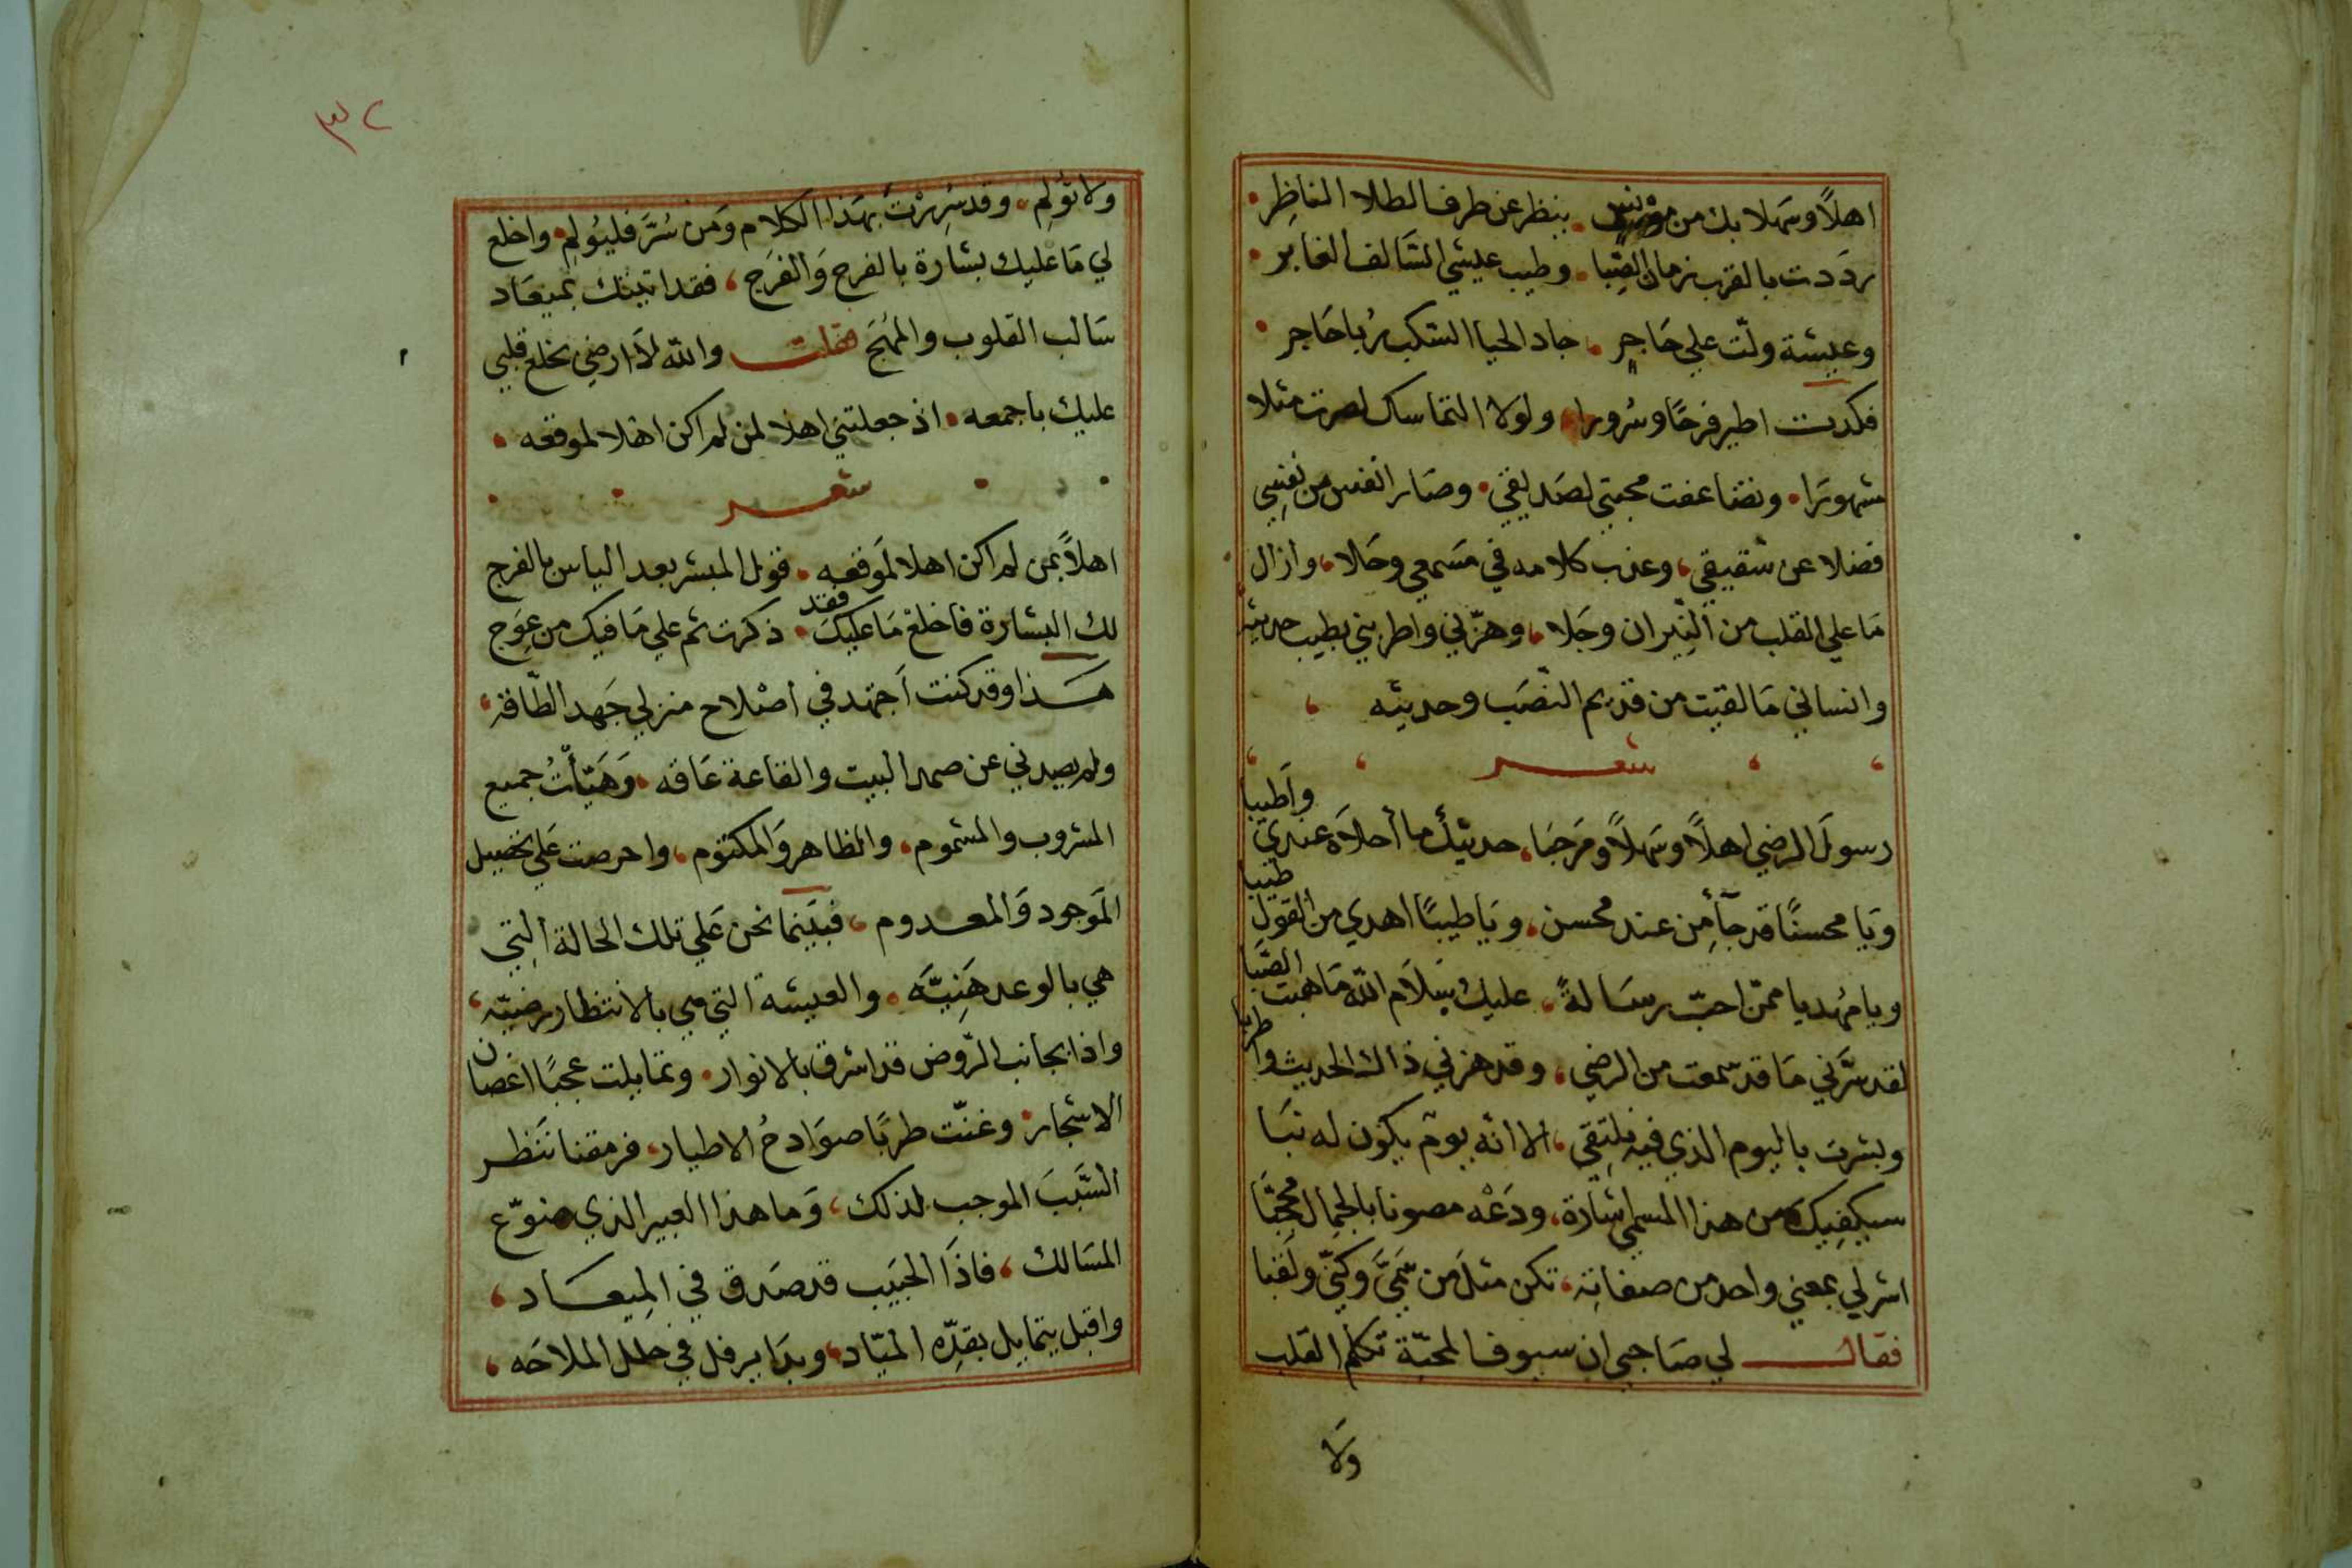 اهلاً وسَهلا بك من مؤنس • ينظر عن طرف الطلا الناظِر •
ردَدت بالقرب زمان الصِّبا • وطيب عيشي السَّالف الغابر •
وعيشة ولّت علي حَاجرٍ • جاد الحيا السكب رُبا حَاجر •
فكدت اطير فرحًا وسُرورا • ولولا التماسك لصرت مثلا
مشهورَا • وتضاعفت محبتي لصَديقي • وصَار انفس من نفسِي
فضلا عن شقيقي ، وعذب كلامه في مَسمعي وحَلا ، وازال
مَا علي القلب من النِّيران وجَلا ، وهزّني واطربني بطيب حديثه
وانساني مَا لقيت من قديم النصَب وحديثِه ،
شعر
رسولَ الرضي اهلاً وسَهلاً ومَرحبَا ، حديثك ما أحلاَه عندي وأَطيبا
ويَا محسنًا قد جآء مِن عند محسن ، ويَا طيبًا اهدي من القول طيبا
ويا مُهديا ممّن احبّ رسَالةً ، عليك سَلاَم الله مَا هبت الصَّبا
لقد سَرَّني مَا قد سمعت من الرضي ، وقد هزني ذاك الحديث واطربا
وبشرت باليوم الذي فيه نلتِقي ، الا انه يومٌ يكون له نبَا
سيكفِيك من هذا المسمي اشارة ، ودَعْه مصونا بالجمال محجبَا
اشر لي بمعني واحد من صفاتِه ، تكن مثلَ من سَمّيَ وكنّي ولقبا
فقال لي صَاحبي ان سيوف المحبّة تكلم القلب
وَلا
٣٢
ولا تؤلِم • وقد سُرِرْتُ بهَذا الكلام وَمن سُرَّ فليُولِم • واخلع
لي مَا عليك بشارة بالفرح وَالفرَج ، فقد اتيتك بميعَاد
سَالب القلوب والمُهَج فقلت والله لاَ ارضي بخلع قلبي
عليك باجمعه • اذ جعلتني اهلا لمن لم اكن اهْلا لموقعه •
شعر
اهلاً بمن لم اكن اهلا لمَوقعه • قول المبشر بعد الياس بالفرج
لك البشارة فاخلعْ مَا عليكَ • فقد ذكرت ثم علي مَا فيك من عِوَج
هَذا وقد كنت اَجتهد في اصْلاح منزلي جَهد الطّاقة ،
ولم يصدني عن صمد البيت والقاعة عَاقه • وَهَيّأْتُ جميع
المشروب والمشموم ، والظاهر وَالمكتوم ، واحرصت عَلي تحصيل
المَوجود وَالمعدوم ، فبَينما نحن عَلي تلك الحالة التِي
هي بالوعد هَنِيَّه • والعيشة التي هي بالانتظار رضيّه ،
واذا بجانب الرّوض قد اشرق بالانوار • وتمايلت عجبًا اغصان
الاشجار • وغنّت طربًا صوَادحُ الاطيار • فرمقنا ننَظر
السَّببَ الموجب لذلك ، وَما هذا العبير الذي ضوّع
المسَالك ، فاذَا الحبَيب قد صَدق في المِيعَاد ،
واقبل يتمايل بقدِّه الميّاد ، وبدَا يرفل في حلل الملاحَه ،